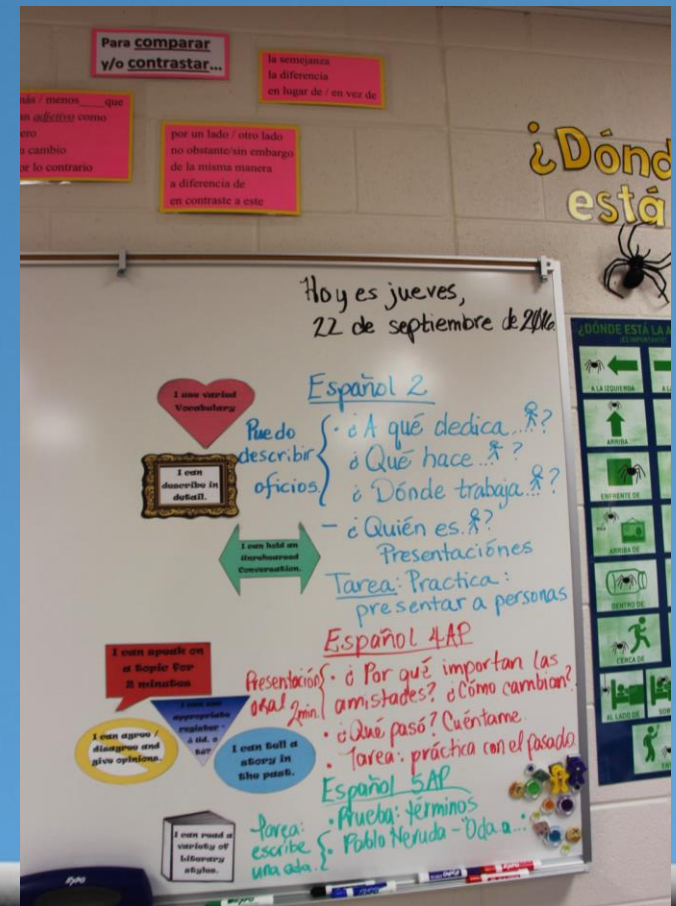 Para comparar
y/o contrastar...
la semejanza
la diferencia
en lugar de / en vez de
más / menos____que
adjetivo como
cambio
lo contrario
por un lado / otro lado
no obstante/sin embargo
de la misma manera
a diferencia de
en contraste a este
¿Dónd
está
Hoy es jueves,
22 de septiembre de 2016
Español 2
Puedo
describir
oficios
· ¿A qué dedica...?
¿Qué hace...?
¿Dónde trabaja...?
- ¿Quién es?
Presentaciónes
Tarea: Practica:
presentar a personas
Español 4AP
Presentación
oral 2min.
· ¿Por qué importan las
amistades? ¿Cómo cambian?
· ¿Qué pasó? Cuéntame
· Tarea: práctica con el pasado.
Español 5AP
· Prueba: términos
· Pablo Neruda - "Oda a..."
Tarea:
escribe
una oda.
I use varied
Vocabulary
I can
describe in
detail.
I can hold an
Unrehearsed
Conversation.
I can speak on
a topic for
2 minutes
I can use
appropriate
register -
¿Ud. o
tú?
I can agree /
disagree and
give opinions.
I can tell a
story in
the past.
I can read a
variety of
literary
styles.
¿DÓNDE ESTÁ LA A
¡ES IMPORTANTE!
A LA IZQUIERDA
ARRIBA
ENFRENTE DE
ARRIBA DE
DENTRO DE
CERCA DE
AL LADO DE
SOB
EXPO